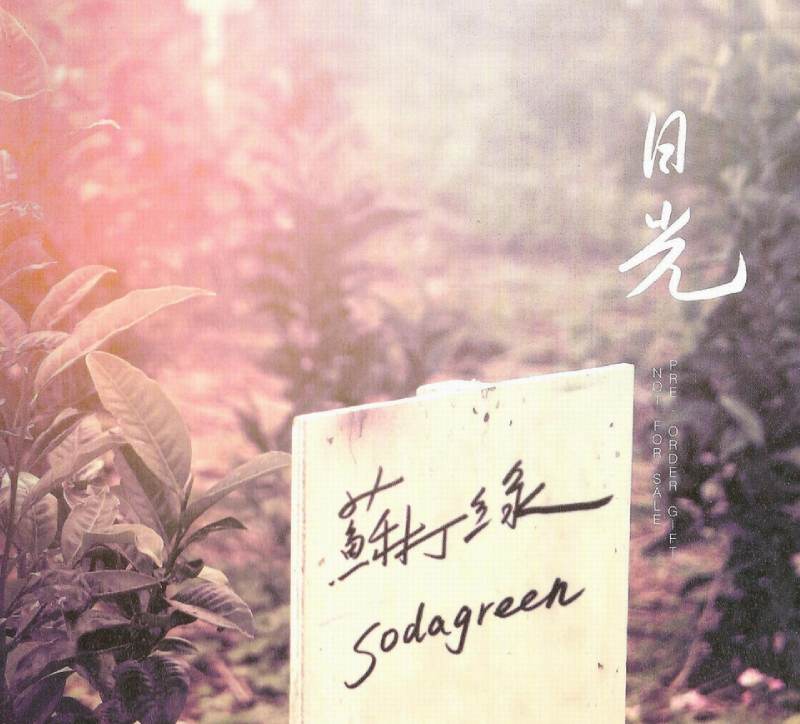 日光
PRE - ORDER GIFT
NOT FOR SALE
蘇打綠
sodagreen